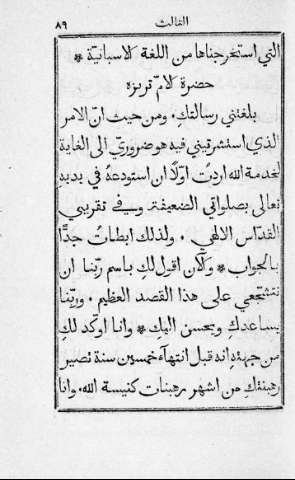 الثالث ٨٩
التي استخرجناها من اللغة الاسبانيّة *
حضرة الامّ تريزه
بلغتني رسالتكِ. ومن حيث انّ الامر
الذي استشرتيني فيه هو ضروريّ الى الغاية
لخدمة الله اردتُ اوّلًا ان استودعهُ في يديهِ
تعالى بصلواتي الضعيفة وفي تقريبي
القدّاس الالهي. ولذلك ابطاتُ جدًّا
بالجواب * والآن اقول لكِ باسم ربّنا ان
تتشجّعي على هذا القصد العظيم. وربّنا
يساعدكِ ويحسن اليكِ * وانا اوكّد لكِ
من جهته انه قبل انتهآء خمسين سنة تصير
رهبنتكِ من اشهر رهبنات كنيسة الله. وانا